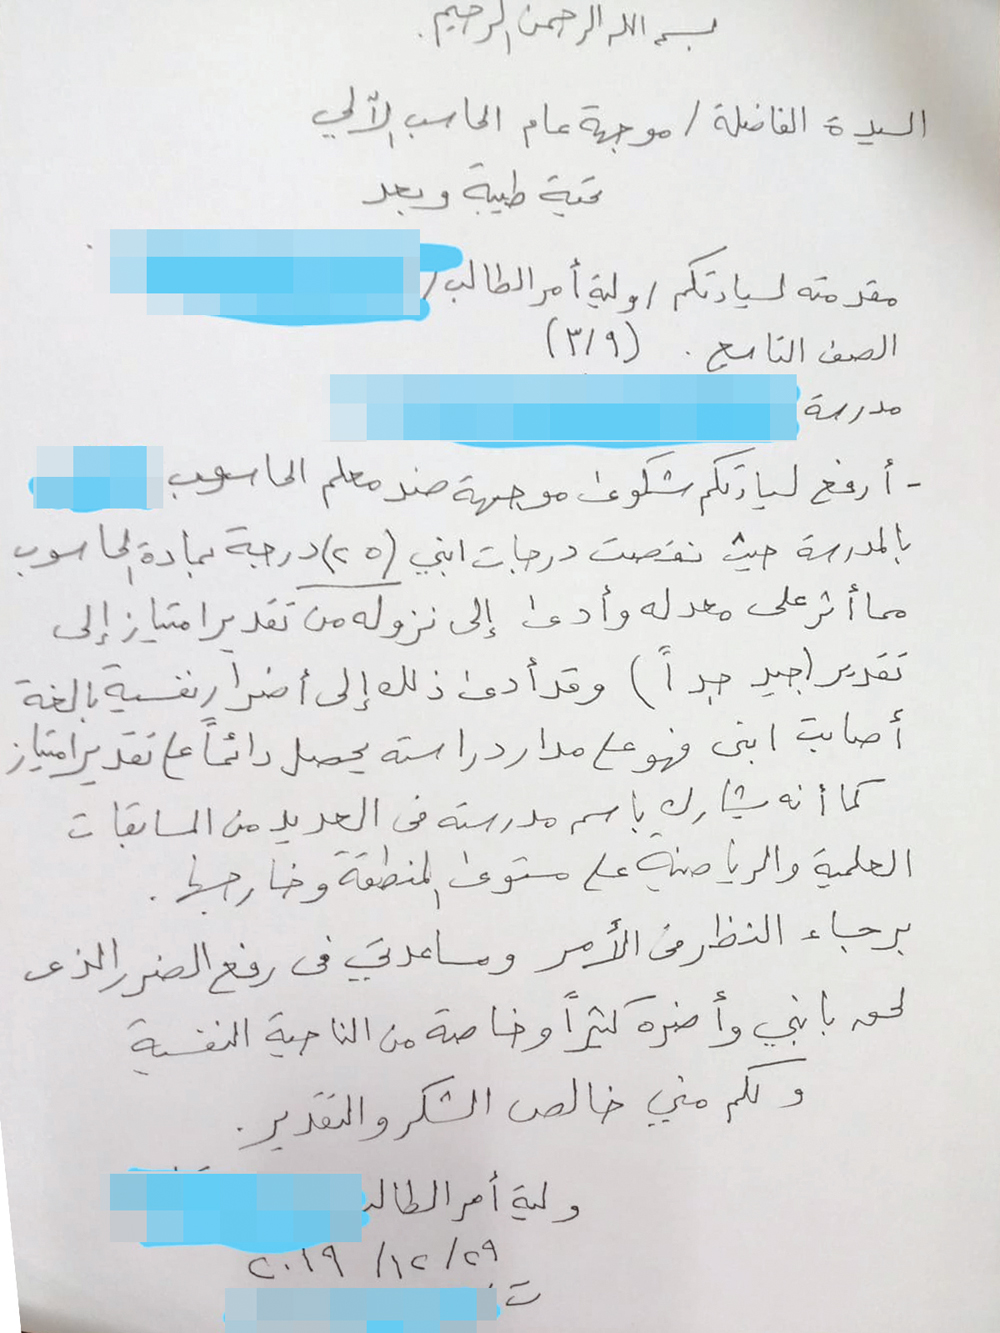 بسم الله الرحمن الرحيم.
السيدة الفاضلة / موجهة عام الحاسب الآلي
تحية طيبة وبعد
مقدمته لسيادتكم / ولية أمر الطالب /
الصف التاسع . (٣/٩)
مدرسة
- أرفع لسيادتكم شكوى موجهة ضد معلم الحاسوب
بالمدرسة حيث نقصت درجات ابني (٢٥) درجة بمادة الحاسوب
مما أثر على معدله وأدى إلى نزوله من تقدير امتياز إلى
تقدير (جيد جداً) وقد أدى ذلك إلى أضرار نفسية بالغة
أصابت ابنى فهو على مدار دراسته يحصل دائماً على تقدير امتياز
كما أنه يشارك باسم مدرسته فى العديد من المسابقات
العلمية والرياضية على مستوى المنطقة وخارجها.
برجاء النظر فى الأمر ومساعدتي فى رفع الضرر الذى
لحق بابني وأضره كثيراً وخاصة من الناحية النفسية
ولكم مني خالص الشكر والتقدير.
ولية أمر الطالب
٢٠١٩ /١٢/ ٢٩
ت: